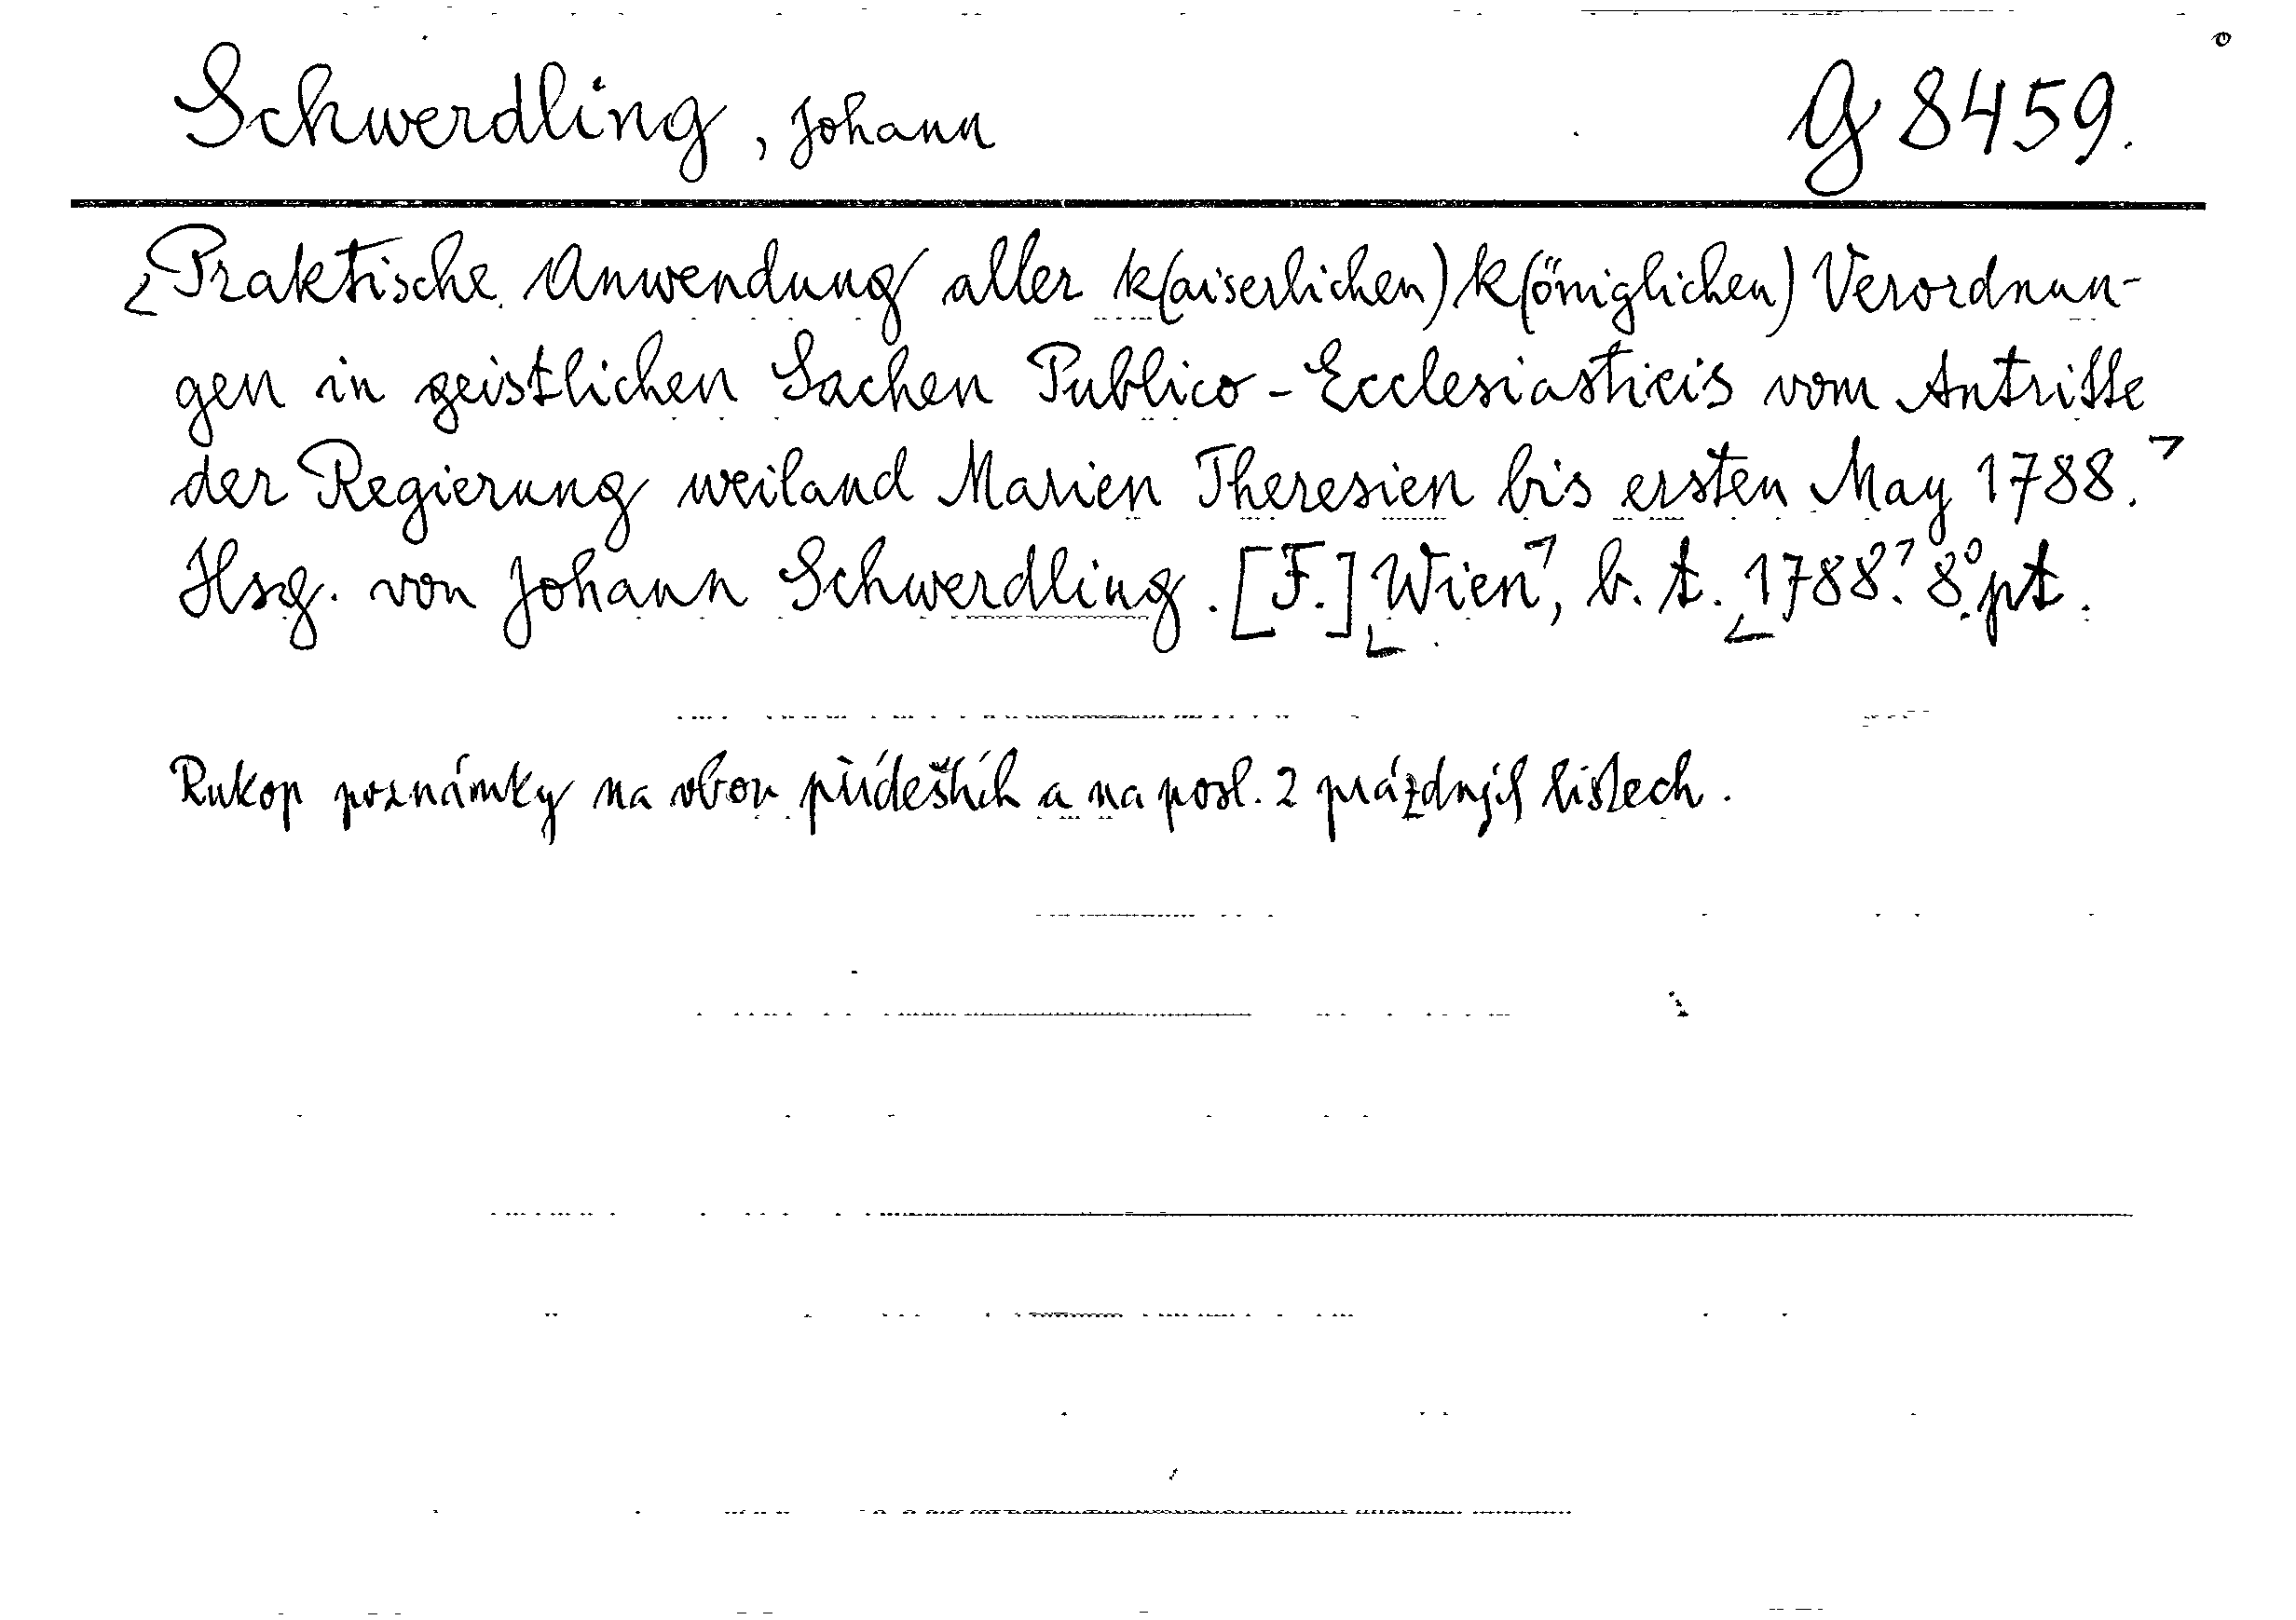 Schwerdling, Johann G 8459.
Praktische Anwendung aller k(aiserlichen) k(öniglichen) Verordnun-
gen in geistlichen Sachen Publico-Ecclesiasticis vom Antritte
der Regierung weiland Marien Theresien bis ersten May 1788.
Hsg. von Johann Schwerdling. [F.] Wien, b. t. 1788. 8° pt.
Rukop poznámky na obou přídeštích a na posl. 2 prázdných listech.